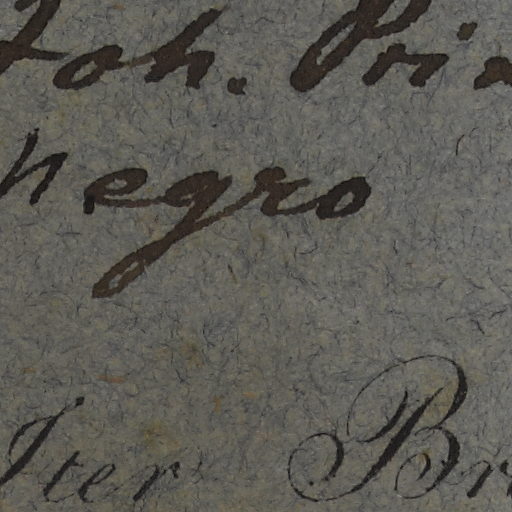 Joh. Pri
negro
Iter Br